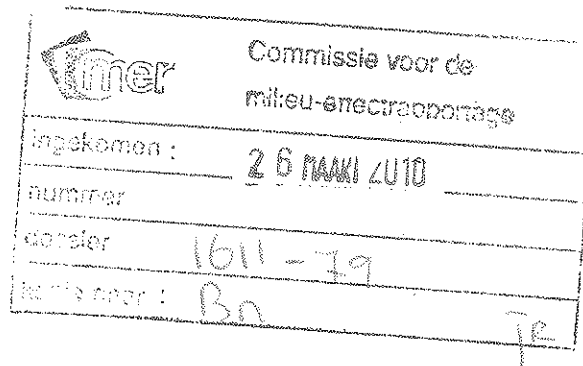 mer Commissie voor de
milieu-effectrapportage
ingekomen : 26 MAART 2010
nummer
dossier 1611-79
kopie naar : Bn